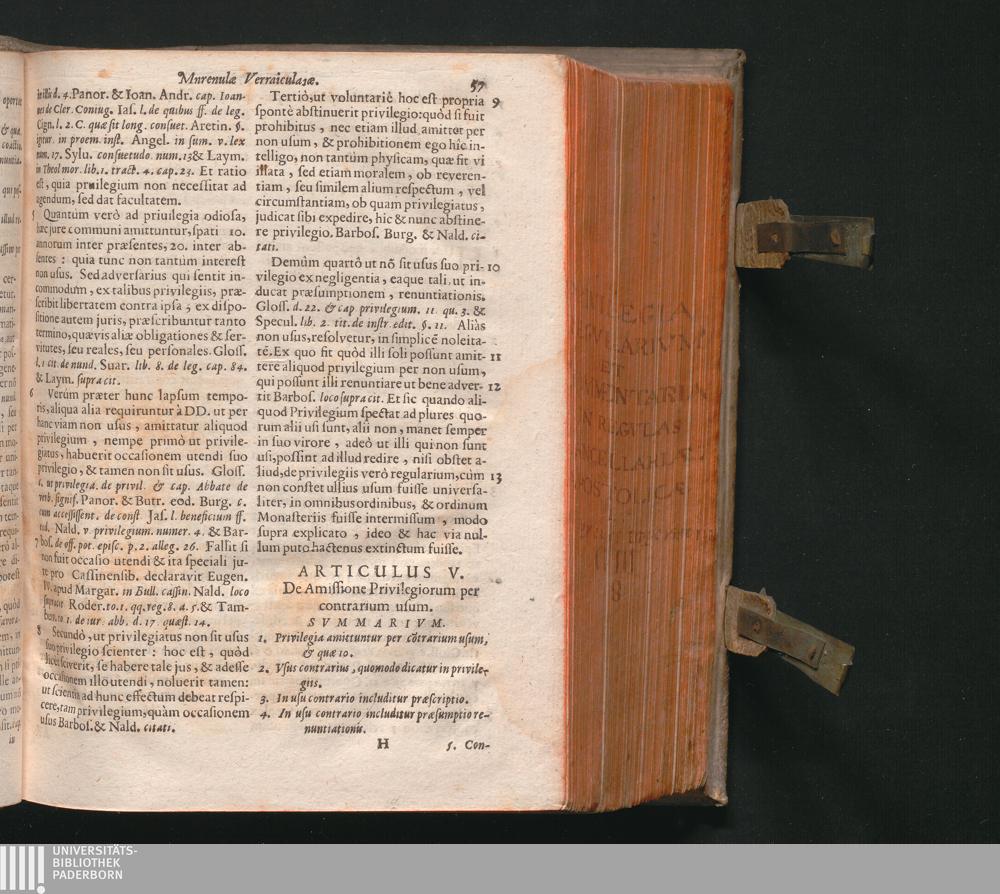 Mnrenulæ Verraiculaꝛæ.
57
in illis d. 4. Panor. & Ioan. Andr. cap. Ioan-
nes de Cler. Coniug. Ias. l. de quibus ff. de leg.
Cign. l. 2. C. quæ sit long. consuet. Aretin. §.
igitur in proem. inst. Angel. in sum. v. lex
num. 17. Sylu. consuetudo num. 13 & Laym.
in Theol mor. lib. 1. tract. 4. cap. 23. Et ratio
est, quia privilegium non necessitat ad
agendum, sed dat facultatem.
5 Quantùm verò ad priuilegia odiosa,
hæc jure communi amittuntur, spati 10.
annorum inter præsentes, 20. inter ab-
sentes : quia tunc non tantùm interest
non usus. Sed adversarius qui sentit in-
commodum, ex talibus privilegiis, præ-
scribit libertatem contra ipsa ; ex dispo-
sitione autem juris, præscribuntur tanto
termino, quævis aliæ obligationes & ser-
vitutes, seu reales, seu personales. Gloss.
l. 1 cit. de nund. Suar. lib. 8. de leg. cap. 84.
& Laym. supra cit.
6 Verùm præter hunc lapsum tempo-
ris, aliqua alia requiruntur à DD. ut per
hanc viam non usus , amittatur aliquod
privilegium , nempe primò ut privile-
giatus, habuerit occasionem utendi suo
privilegio, & tamen non sit usus. Gloss.
l. ut privilegia. de privil. & cap. Abbate de
verb. signif. Panor. & Butr. eod. Burg. c.
cum accessissent. de const. Jas. l. beneficium ff.
eod. Nald. v. privilegium. numer. 4. & Bar-
7 bos. de off. pot. episc. p. 2. alleg. 26. Fallit si
non fuit occasio utendi & ita speciali ju-
re pro Cassinensib. declaravit Eugen.
IV. apud Margar. in Bull. cassin. Nald. loco
supracit Roder. to. 1. qq. reg. 8. a. 5. & Tam-
ben. to 1. de iur. abb. d. 17 quæst. 14.
8 Secundò, ut privilegiatus non sit usus
suo privilegio scienter : hoc est, quòd
licet sciverit, se habere tale jus, & adesse
occasionem illo utendi, noluerit tamen:
ut scientia ad hunc effectum debeat respi-
cere, tam privilegium, quàm occasionem
usus Barbos. & Nald. citati.
Tertiò, ut voluntariè hoc est propria 9
spontè abstinuerit privilegio: quòd si fuit
prohibitus , nec etiam illud amittet per
non usum, & prohibitionem ego hîc in-
telligo, non tantùm physicam, quæ fit vi
illata , sed etiam moralem , ob reveren-
tiam , seu similem alium respectum , vel
circumstantiam, ob quam privilegiatus,
judicat sibi expedire, hic & nunc abstine-
re privilegio. Barbos. Burg. & Nald. ci-
tati.
Demùm quartò ut nõ sit usus suo pri- 10
vilegio ex negligentia, eaque tali, ut in-
ducat præsumptionem , renuntiationis.
Gloss. d. 22. & cap privilegium. 11 qu. 3. &
Specul. lib. 2. tit. de instr. edit. §. 11. Aliàs
non usus, resolvetur, in simplicẽ noleita-
tẽ. Ex quo fit quòd illi soli possunt amit- 11
tere aliquod privilegium per non usum,
qui possunt illi renuntiare ut bene adver- 12
tit Barbos. loco supra cit. Et sic quando ali-
quod Privilegium spectat ad plures quo-
rum alii usi sunt, alii non, manet semper
in suo virore , adeò ut illi qui non sunt
usi, possint ad illud redire , nisi obstet a-
liud, de privilegiis verò regularium, cùm 13
non constet ullius usum fuisse universa-
liter, in omnibus ordinibus, & ordinum
Monasteriis fuisse intermissum , modo
supra explicato , ideo & hac via nul-
lum puto hactenus extinctum fuisse.
ARTICULUS V.
De Amissione Privilegiorum per
contrarium usum.
SVMMARIVM.
1. Privilegia amittuntur per cõtrarium usum,
& quæ 10.
2. Vsus contrarius, quomodo dicatur in privile-
giis.
3. In usu contrario includitur præscriptio.
4. In usu contrario includitur præsumptio re-
nuntiationis.
H
5. Con-
UNIVERSITÄTS-
BIBLIOTHEK
PADERBORN